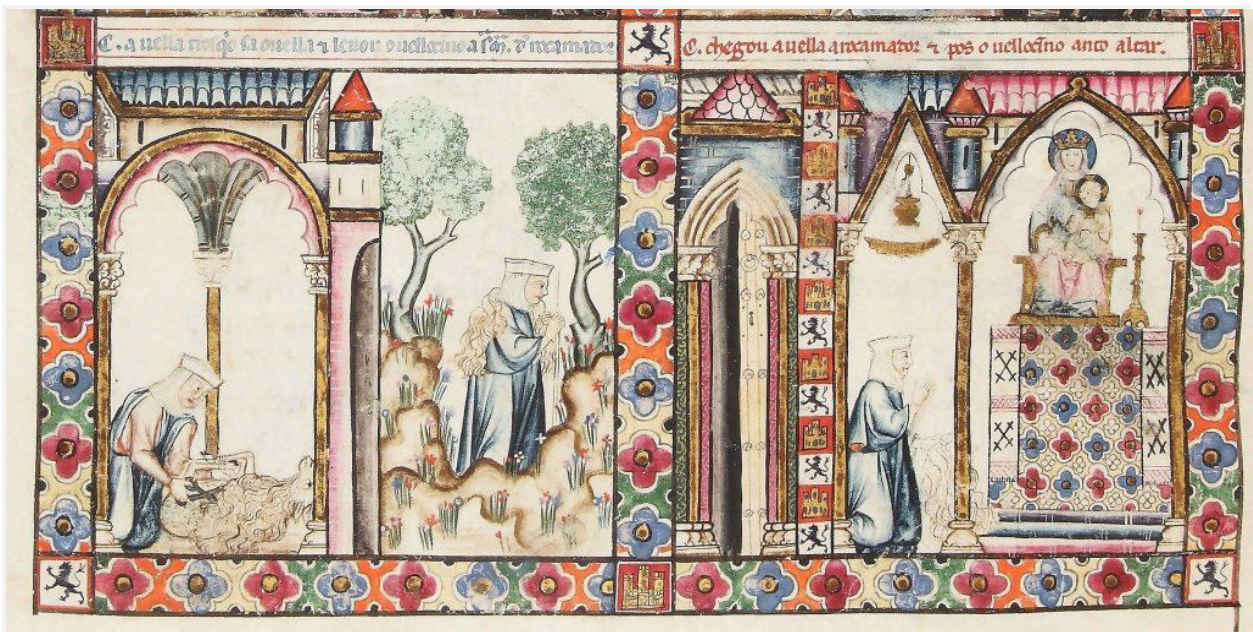 C. a uella trosq̇o sa ouella ⁊ leuou o uelloçino a s̃. m̃. d̃ rocamador
C. chegou a uella a rocamador ⁊ pos o uelloçino anto altar.